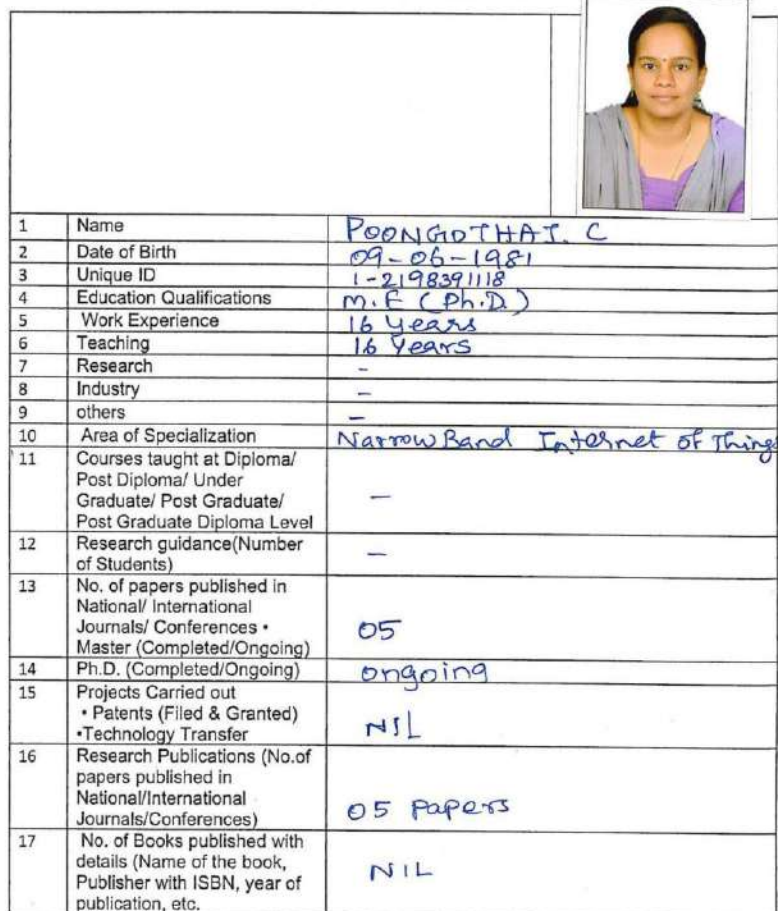 1 Name POONGOTHAI. C
2 Date of Birth 09-06-1981
3 Unique ID 1-2198391118
4 Education Qualifications M.E (Ph.D.)
5 Work Experience 16 Years
6 Teaching 16 Years
7 Research -
8 Industry -
9 others -
10 Area of Specialization Narrow Band Internet of Things
11 Courses taught at Diploma/
Post Diploma/ Under
Graduate/ Post Graduate/ -
Post Graduate Diploma Level
12 Research guidance(Number -
of Students)
13 No. of papers published in
National/ International
Journals/ Conferences • 05
Master (Completed/Ongoing)
14 Ph.D. (Completed/Ongoing) ongoing
15 Projects Carried out
• Patents (Filed & Granted) NIL
•Technology Transfer
16 Research Publications (No.of
papers published in
National/International 05 Papers
Journals/Conferences)
17 No. of Books published with
details (Name of the book, NIL
Publisher with ISBN, year of
publication, etc.